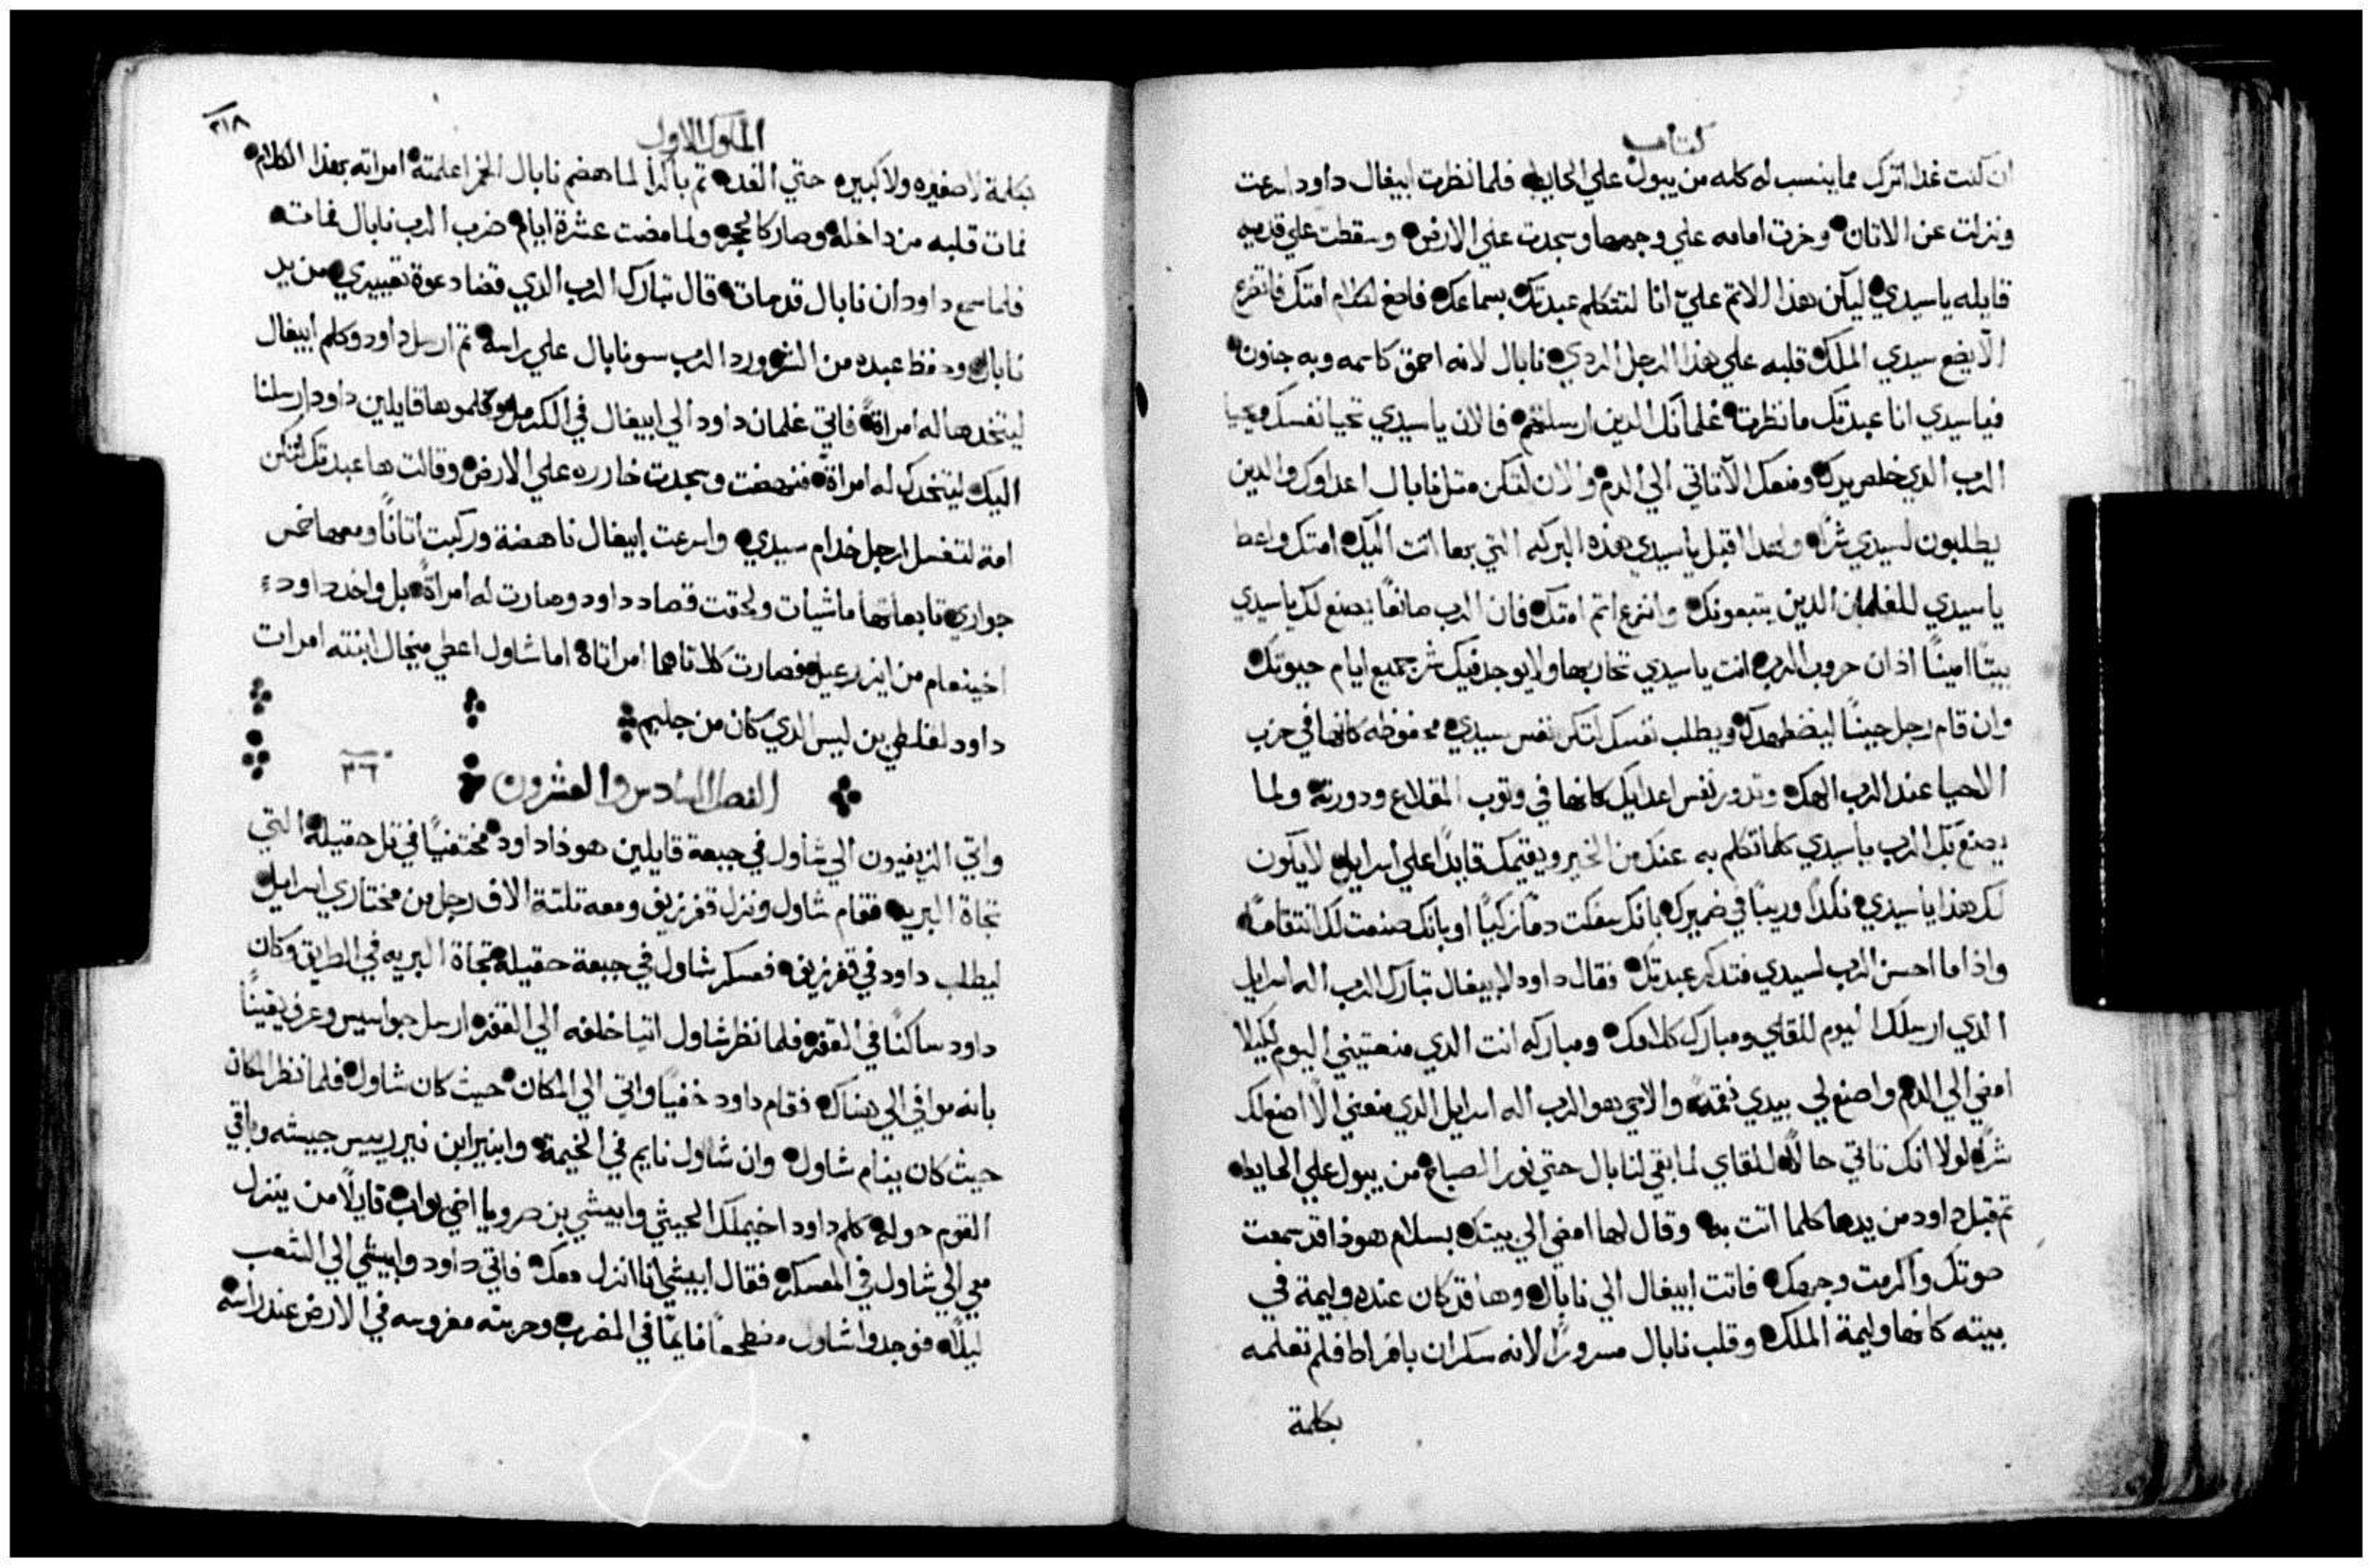 كتاب
ان كنت غدا اترك مما ينسب له كله من يبول علي الحايط فلما نظرت ابيغال داود اسرعت
ونزلت عن الاتان وخرت امامه علي وجهها وسجدت علي الارض وسقطت علي قدميه
قايله يا سيدي ليكن هذا الاتم عليّ انا لتتكلم عبدتك بسماعك فاصغ لكلام امتك فاتضرع
الّا يضع سيدي الملك قلبه علي هذا الرجل الردي نابال لانه احمق كاسمه وبه جنون
فيا سيدي انا عبدتك ما نظرت غلمانك الدين ارسلتهم فالان يا سيدي تحيا نفسك ويحيا
الرب الدي خلص يدك ومنعك الّا تاتي الي الدم والان لتكن متل نابال اعداوك والدين
يطلبون لسيدي شرًا ولهدا اقبل يا سيدي هذه البركه التي بها اتت اليك امتك واعط
يا سيدي للغلمان الدين يتبعونك وانزع اتم امتك فان الرب صانعًا يصنع لك يا سيدي
بيتًا امينًا اذ ان حروب الرب انت يا سيدي تحاربها ولا يوجد فيك شر جميع ايام حيوتك
وان قام رجل حينًا ليضطهدك ويطلب نفسك لتكن نفس سيدي محفوظه كانها في حزب
الاحيا عند الرب الهك وتدور نفس اعدايك كانها في وتوب المقلاع ودورته ولما
يصنع بك الرب يا سيدي كلما تكلم به عنك من الخير ويقيمك قايدًا علي اسراييل لا يكون
لك هذا يا سيدي نكدًا وريبًا في ضميرك بانك سفكت دمًا زكيًا او بانك صنعت لك انتقامًا
واذا ما احسن الرب لسيدي فتدكر عبدتك فقال داود لابيغال تبارك الرب اله اسراييل
الدي ارسلك اليوم للقاي ومبارك كلامك ومباركه انت الدي منعتيني اليوم لكيلا
امضي الي الدم واصنع لي بيدي نقمةً والا حي هو الرب اله اسراييل الدي منعني الّا اصنع لك
شرًا لولا انك تاتي حالًا للقاي لما بقي لنابال حتي نور الصباح من يبول علي الحايط
تم قبل داود من يدها كلما اتت به وقال لها امضي الي بيتك بسلام هوذا قد سمعت
صوتك واكرمت وجهك فاتت ابيغال الي نابال وها قد كان عنده وليمة في
بيته كانها وليمة الملك وقلب نابال مسرورًا لانه سكران بافراط فلم تعلمه
بكلمة
الملوك الاول
٢١٨
بكلمة لا صغيره ولا كبيره حتي الغد تم باكرًا لما هضم نابال الخمر اعلمته امراته بهذا الكلام
فمات قلبه من داخله وصار كالحجر ولما مضت عشرة ايام ضرب الرب نابال فمات
فلما سمع داود ان نابال قد مات قال تبارك الرب الدي قضا دعوة تعييري من يد
نابال وحفظ عبده من الشر ورد الرب سو نابال علي راسه تم ارسل داود وكلم ابيغال
ليتخدها له امراةً فاتي غلمان داود الي ابيغال في الكرمل وكلموها قايلين داود ارسلنا
اليك ليتخدك له امراة فنهضت وسجدت خاره علي الارض وقالت ها عبدتك لتكن
امة لتغسل ارجل خدام سيدي واسرعت ابيغال ناهضة وركبت اتانًا ومعها خمس
جواري تابعاتها ماشيات ولحقت قصاد داود وصارت له امراةً بل واخد داود
اخينعام من ايزرعيل فصارت كلاتاهما امراتاه اما شاول اعطي ميخال ابنته امرات
داود لفلطي بن ليس الدي كان من جليم
الفصل السادس والعشرون ٢٦
واتي الزيفيون الي شاول في جبعة قايلين هوذا داود مختفيًا في تل حقيله التي
تجاة البريه فقام شاول ونزل قفر زيف ومعه تلتة الاف رجل من مختاري اسراييل
ليطلب داود في قفر زيف فعسكر شاول في جبعة حقيله تجاة البريه في الطريق وكان
داود ساكنًا في القفر فلما نظر شاول اتيا خلفه الي القفر ارسل جواسيس وعرف يقينًا
بانه موافي الي هناك فقام داود خفيًا واتي الي المكان حيث كان شاول فلما نظر المكان
حيث كان ينام شاول وان شاول نايم في الخيمة وابنير ابن نير رييس جيشه وباقي
القوم حوله كلم داود اخيملك الحيثي وابيشي بن صرويا اخي يواب قايلًا من ينزل
معي الي شاول في المعسكر فقال ابيشي انا انزل معك فاتي داود وابيشي الي الشعب
ليلًا فوجدوا شاول منطجعًا نايمًا في المضرب وحربته مغروسه في الارض عند راسه